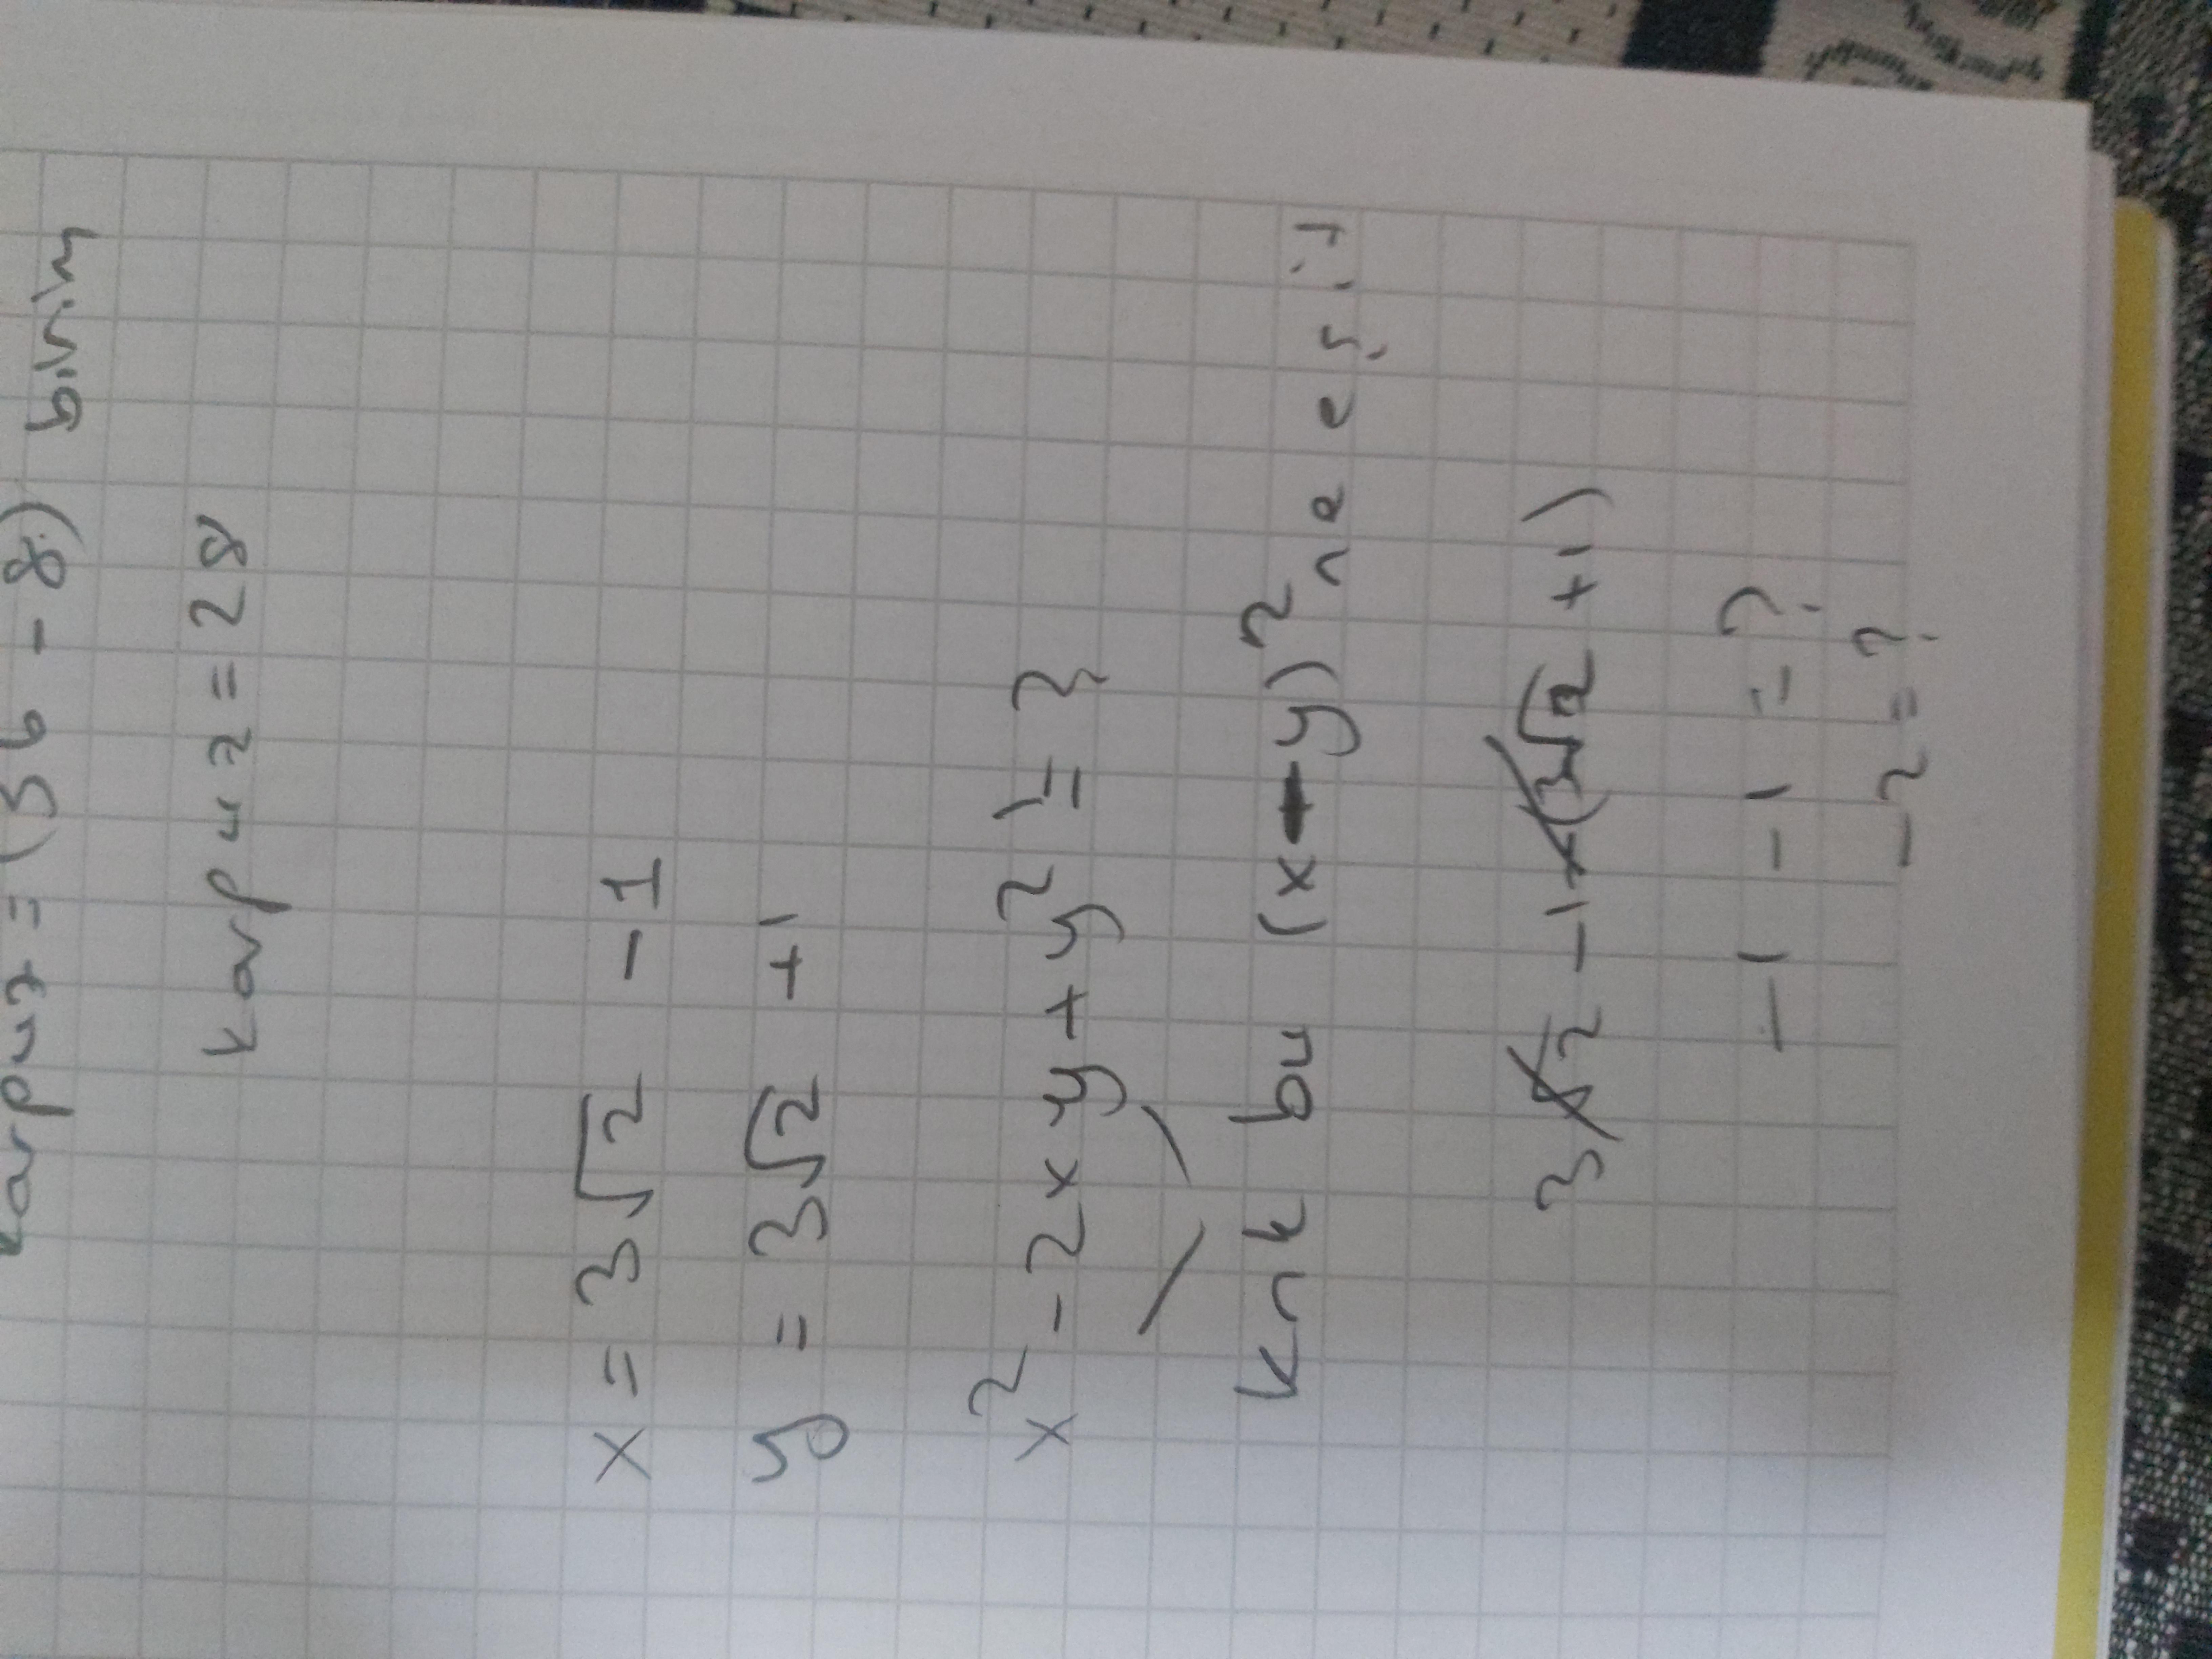 karpuz = (36 - 8) birim
karpuz = 28
x = 3√2 - 1
y = 3√2 + 1
x² - 2xy + y² = ?
knk bu (x - y)² ne eşit
3√2 - 1 - (3√2 + 1)
- 1 - 1 = ?
- 2 = ?